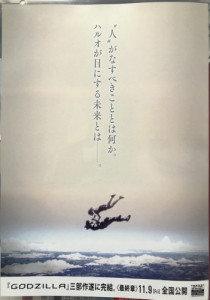 〝人〟がなすべきこととは何か。
ハルオが目にする未来とは――。
『GODZILLA』三部作遂に完結。〈最終章〉11.9[fri]全国公開